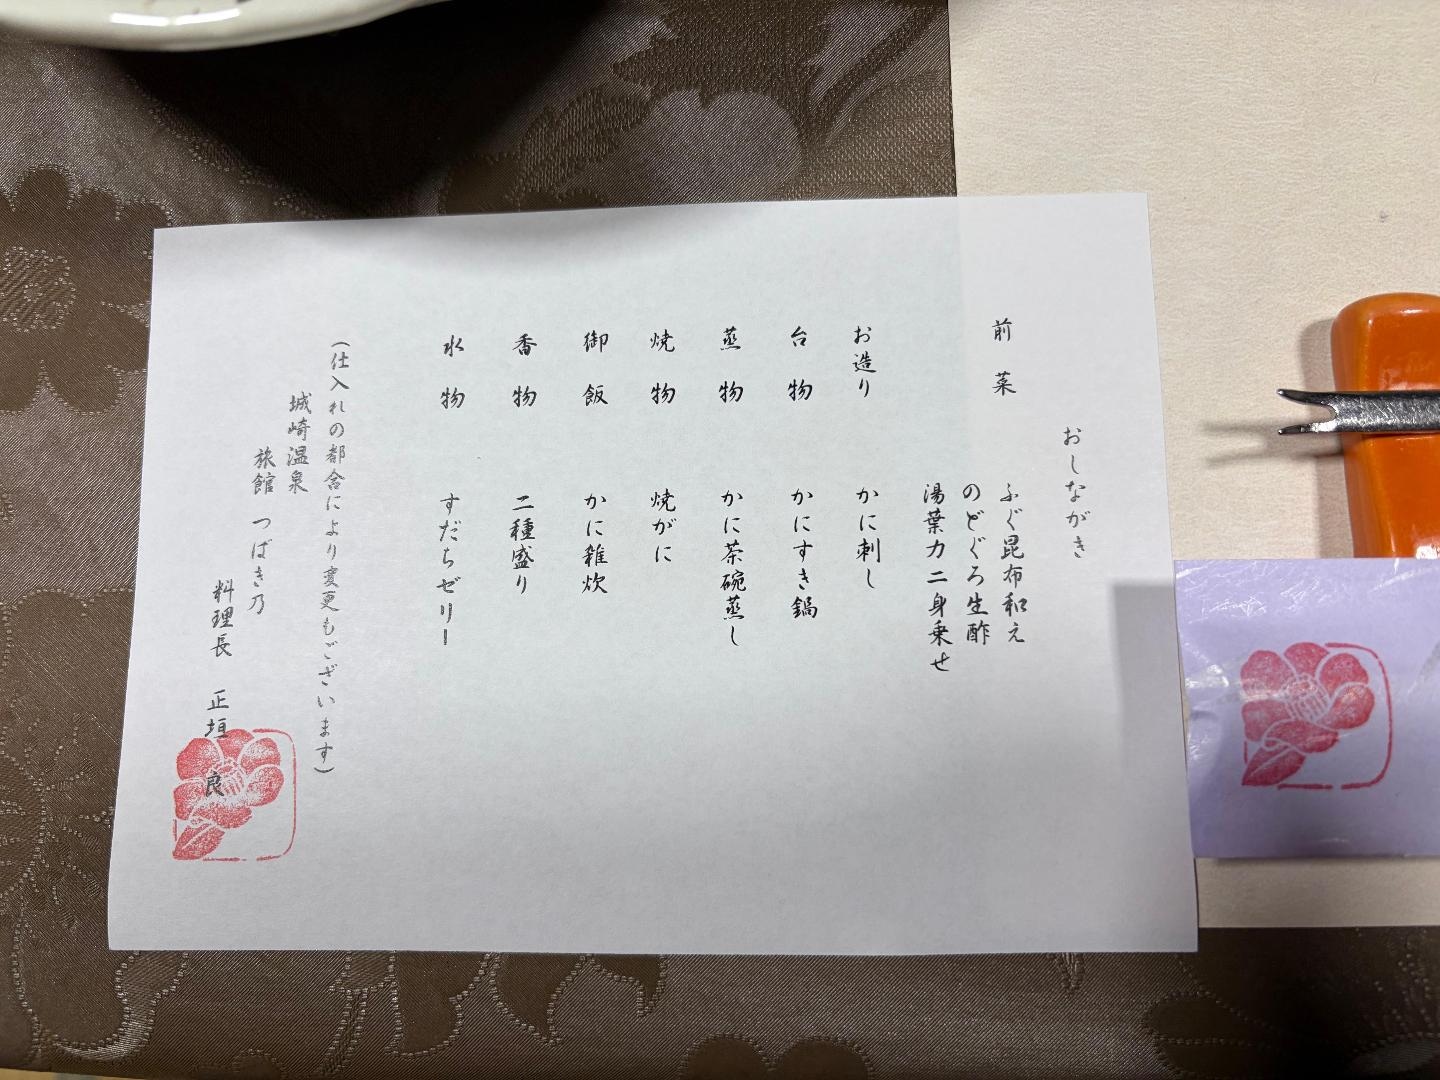 おしながき
前菜 ふぐ昆布和え
のどぐろ生酢
湯葉カニ身乗せ
お造り かに刺し
台物 かにすき鍋
蒸物 かに茶碗蒸し
焼物 焼がに
御飯 かに雑炊
香物 二種盛り
水物 すだちゼリー
(仕入れの都合により変更もございます)
城崎温泉
旅館 つばき乃
料理長 正垣 良